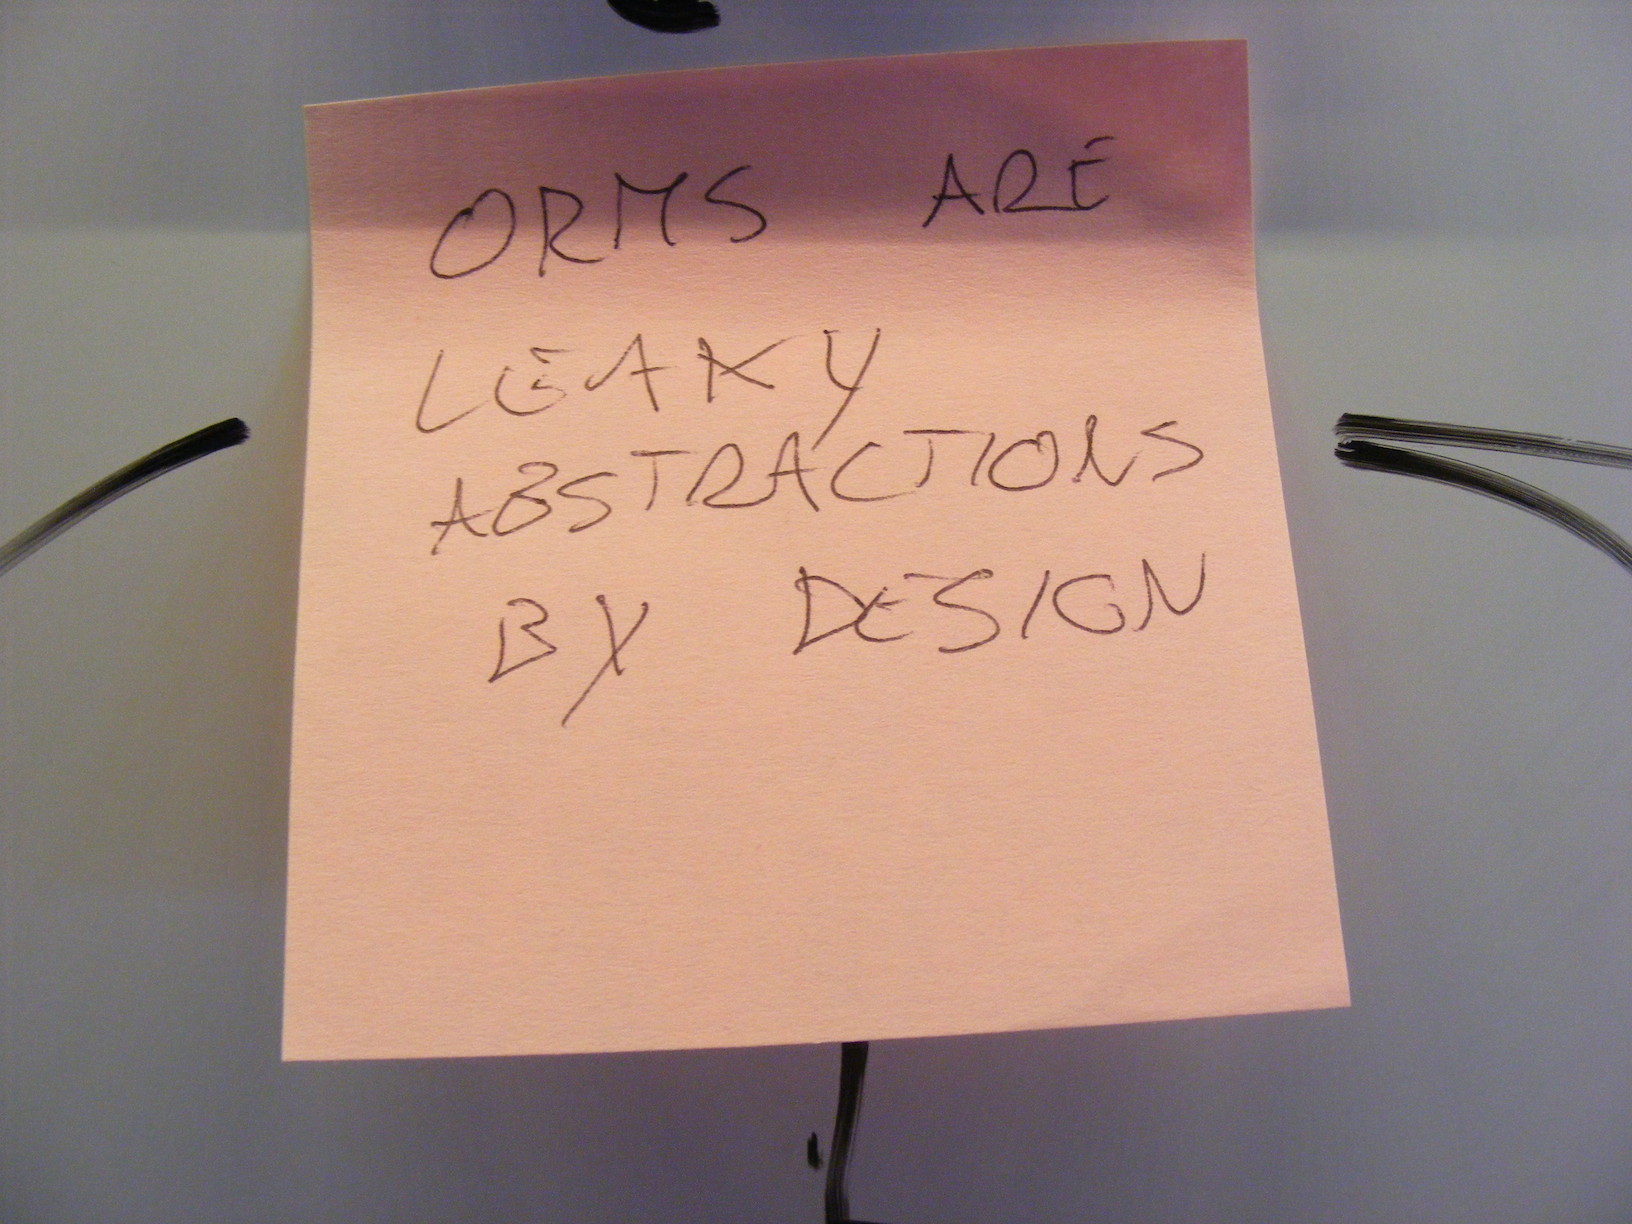 ORMS ARE
LEAKY
ABSTRACTIONS
BY DESIGN